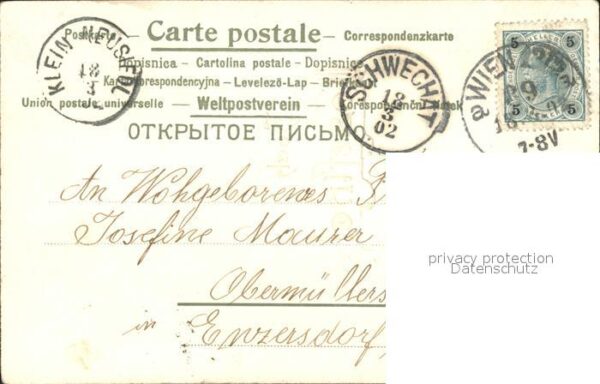 Postkarte - Carte postale - Correspondenzkarte
Dopisnica - Cartolina postale - Dopisnice
Karta korespondencyjna - Levelező-Lap - Brief
Union postale universelle - Weltpostverein - Correspondenční lístek
ОТКРЫТОЕ ПИСЬМО
KLEIN NEUSIEDL
18
3
SCHWECHAT
18
3
02
WIEN
9
7-8V
5 5
5 5
An Wohgeborenes F
Josefine Maurer
Obermüllers
in Enzersdorf
privacy protection
Datenschutz